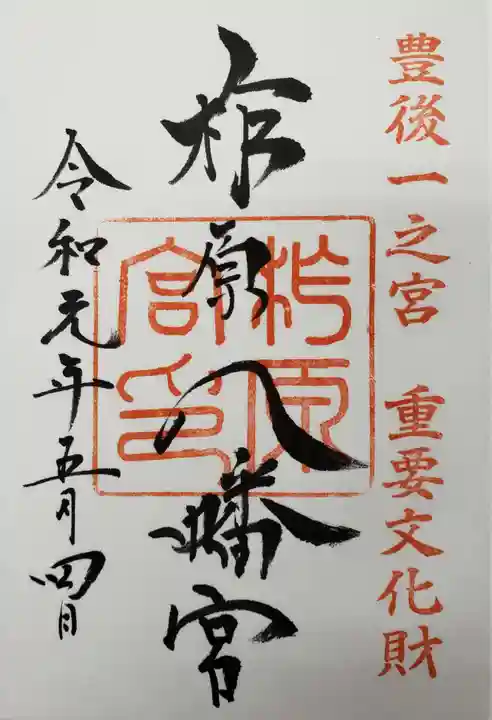 豊後一之宮 重要文化財
柞原八幡宮
柞原宮印
令和元年五月四日